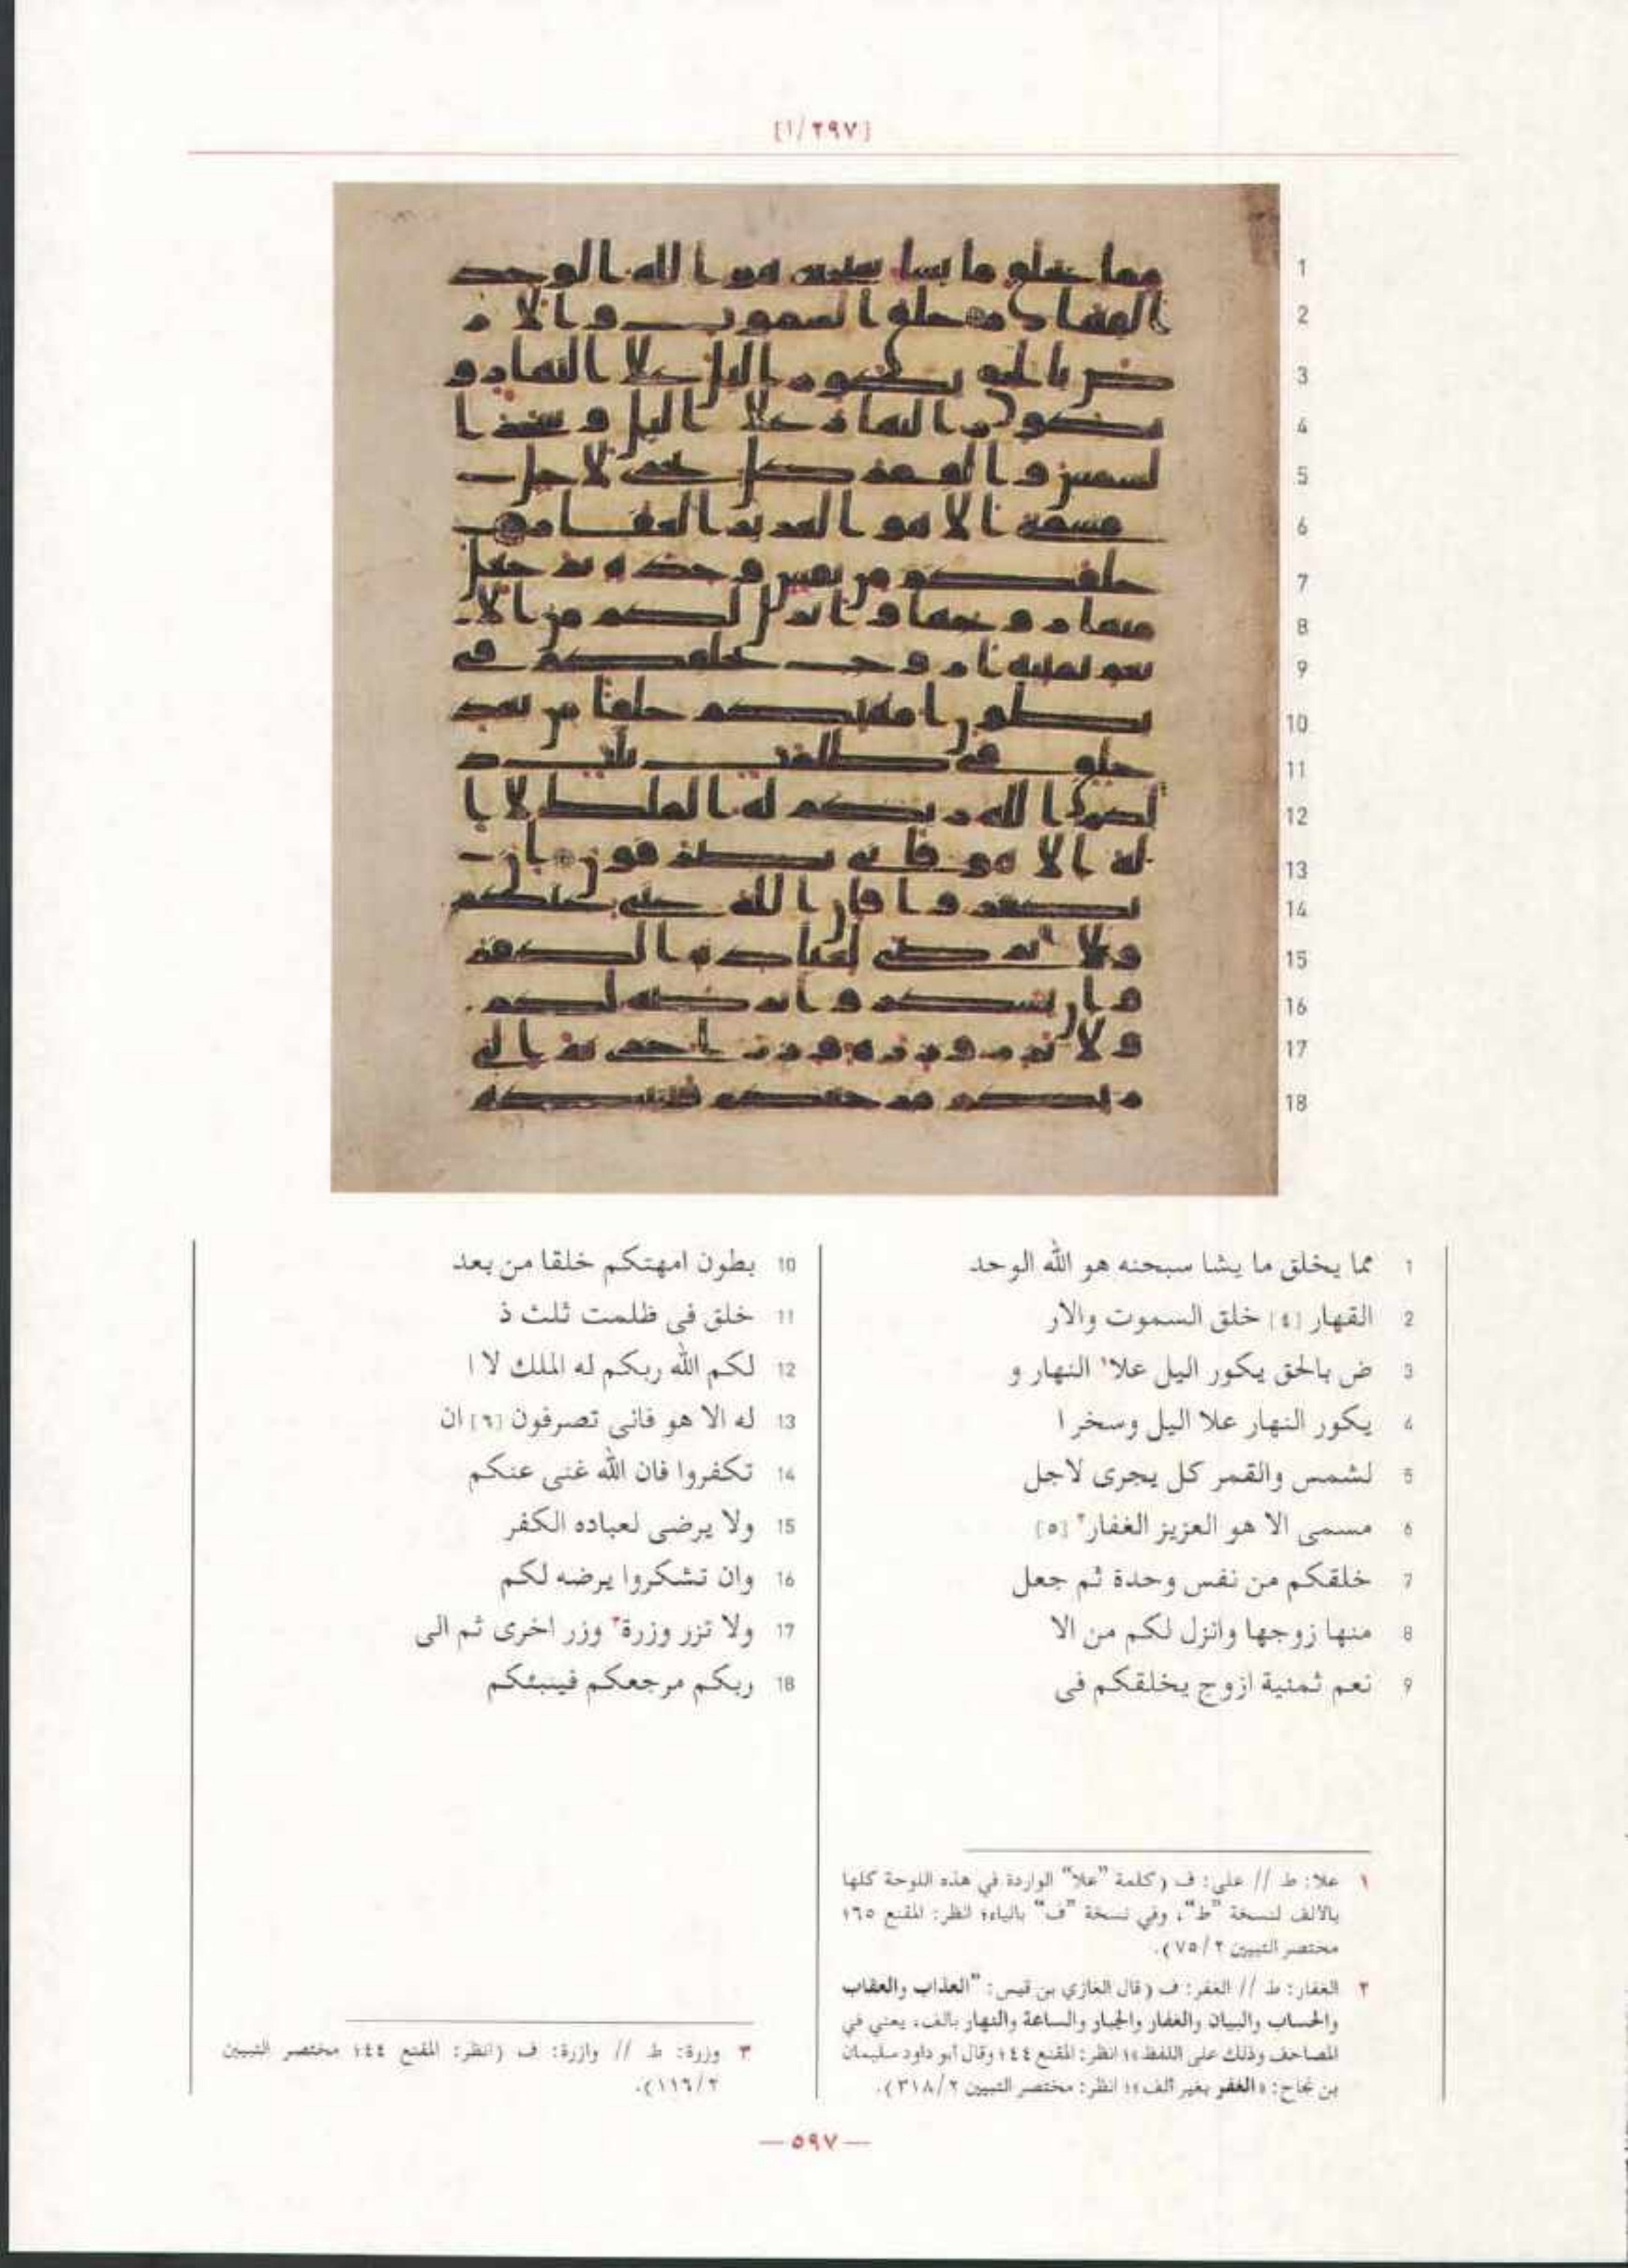 [١/٢٩٧]
1
2
3
4
5
6
7
8
9
10
11
12
13
14
15
16
17
18
1 مما يخلق ما يشا سبحنه هو الله الوحد
2 القهار [٤] خلق السموت والار
3 ض بالحق يكور اليل علا١ النهار و
4 يكور النهار علا اليل وسخر ا
5 لشمس والقمر كل يجرى لاجل
6 مسمى الا هو العزيز الغفار٢ [٥]
7 خلقكم من نفس وحدة ثم جعل
8 منها زوجها وانزل لكم من الا
9 نعم ثمنية ازوج يخلقكم فى
10 بطون امهتكم خلقا من بعد
11 خلق فى ظلمت ثلث ذ
12 لكم الله ربكم له الملك لا ا
13 له الا هو فانى تصرفون [٦] ان
14 تكفروا فان الله غنى عنكم
15 ولا يرضى لعباده الكفر
16 وان تشكروا يرضه لكم
17 ولا تزر وزرة٣ وزر اخرى ثم الى
18 ربكم مرجعكم فينبئكم
١ علا: ط // على: ف (كلمة "علا" الواردة في هذه اللوحة كلها
بالالف لنسخة "ط"، وفي نسخة "ف" بالياء؛ انظر: المقنع ١٦٥
مختصر التبيين ٧٥/٢).
٢ الغفار: ط // الغفر: ف (قال الغازي بن قيس: "العذاب والعقاب
والحساب والبيان والغفار والجبار والساعة والنهار بالف، يعني في
المصاحف وذلك على اللفظ»؛ انظر: المقنع ٤٤؛ وقال أبو داود سليمان
بن نجاح: «الغفر بغير ألف»؛ انظر: مختصر التبيين ٣١٨/٢).
٣ وزرة: ط // وازرة: ف (انظر: المقنع ٤٤؛ مختصر التبيين
١١٦/٢).
— ٥٩٧ —